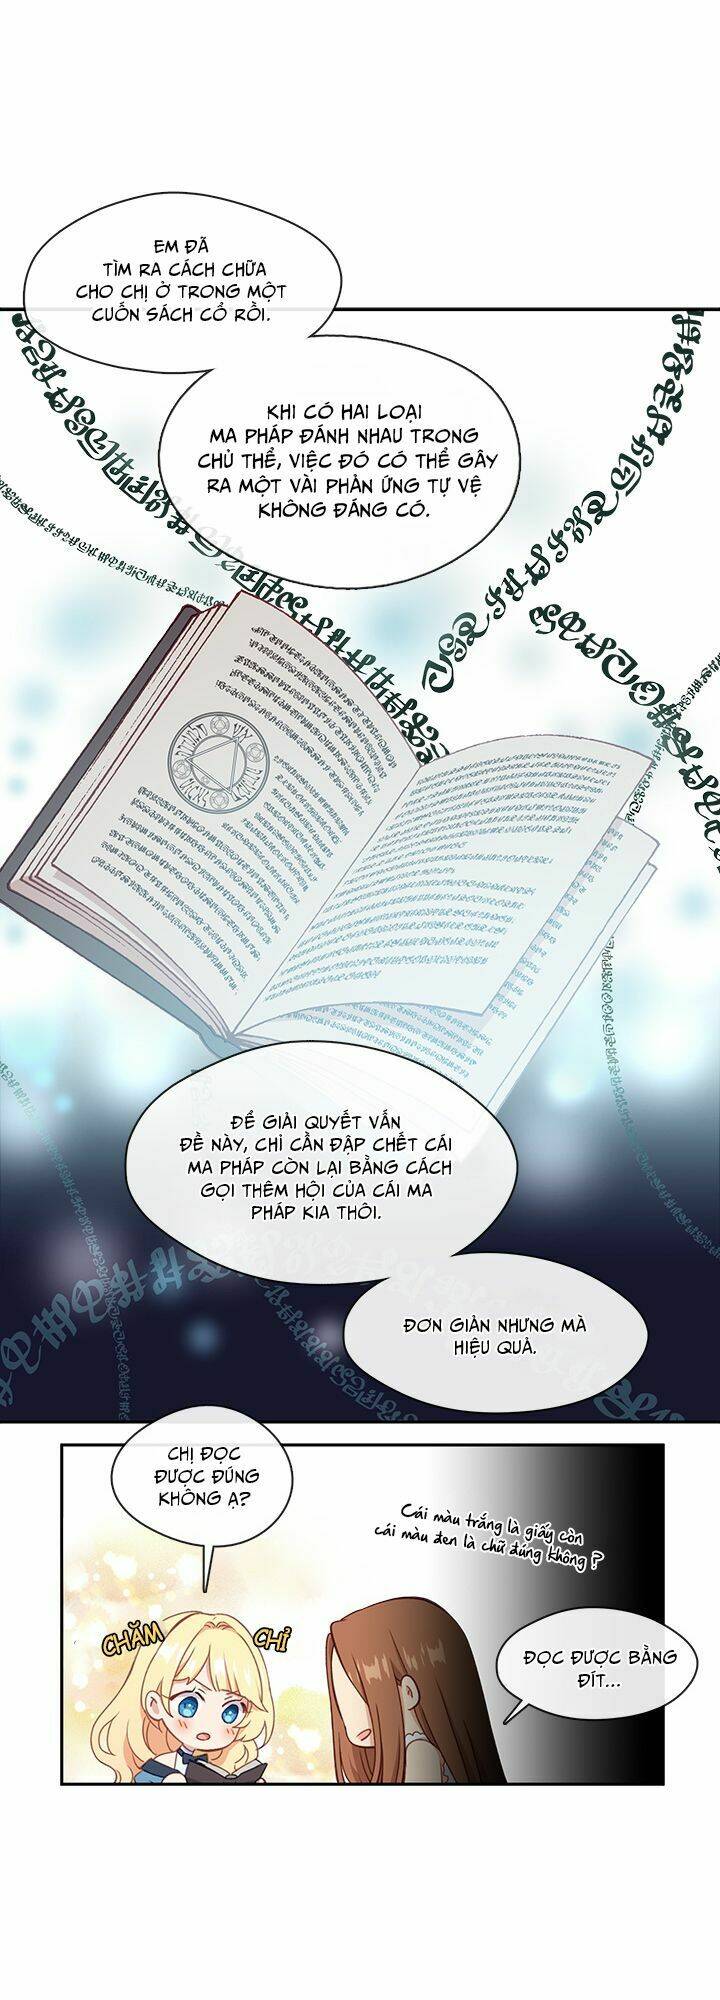 EM ĐÃ
TÌM RA CÁCH CHỮA
CHO CHỊ Ở TRONG MỘT
CUỐN SÁCH CỔ RỒI.
KHI CÓ HAI LOẠI
MA PHÁP ĐÁNH NHAU TRONG
CHỦ THỂ, VIỆC ĐÓ CÓ THỂ GÂY
RA MỘT VÀI PHẢN ỨNG TỰ VỆ
KHÔNG ĐÁNG CÓ.
ĐỂ GIẢI QUYẾT VẤN
ĐỀ NÀY, CHỈ CẦN ĐẬP CHẾT CÁI
MA PHÁP CÒN LẠI BẰNG CÁCH
GỌI THÊM HỘI CỦA CÁI MA
PHÁP KIA THÔI.
ĐƠN GIẢN NHƯNG MÀ
HIỆU QUẢ.
CHỊ ĐỌC
ĐƯỢC ĐÚNG
KHÔNG Ạ?
Cái màu trắng là giấy còn
cái màu đen là chữ đúng không?
CHĂM CHỈ
ĐỌC ĐƯỢC BẰNG
ĐÍT...